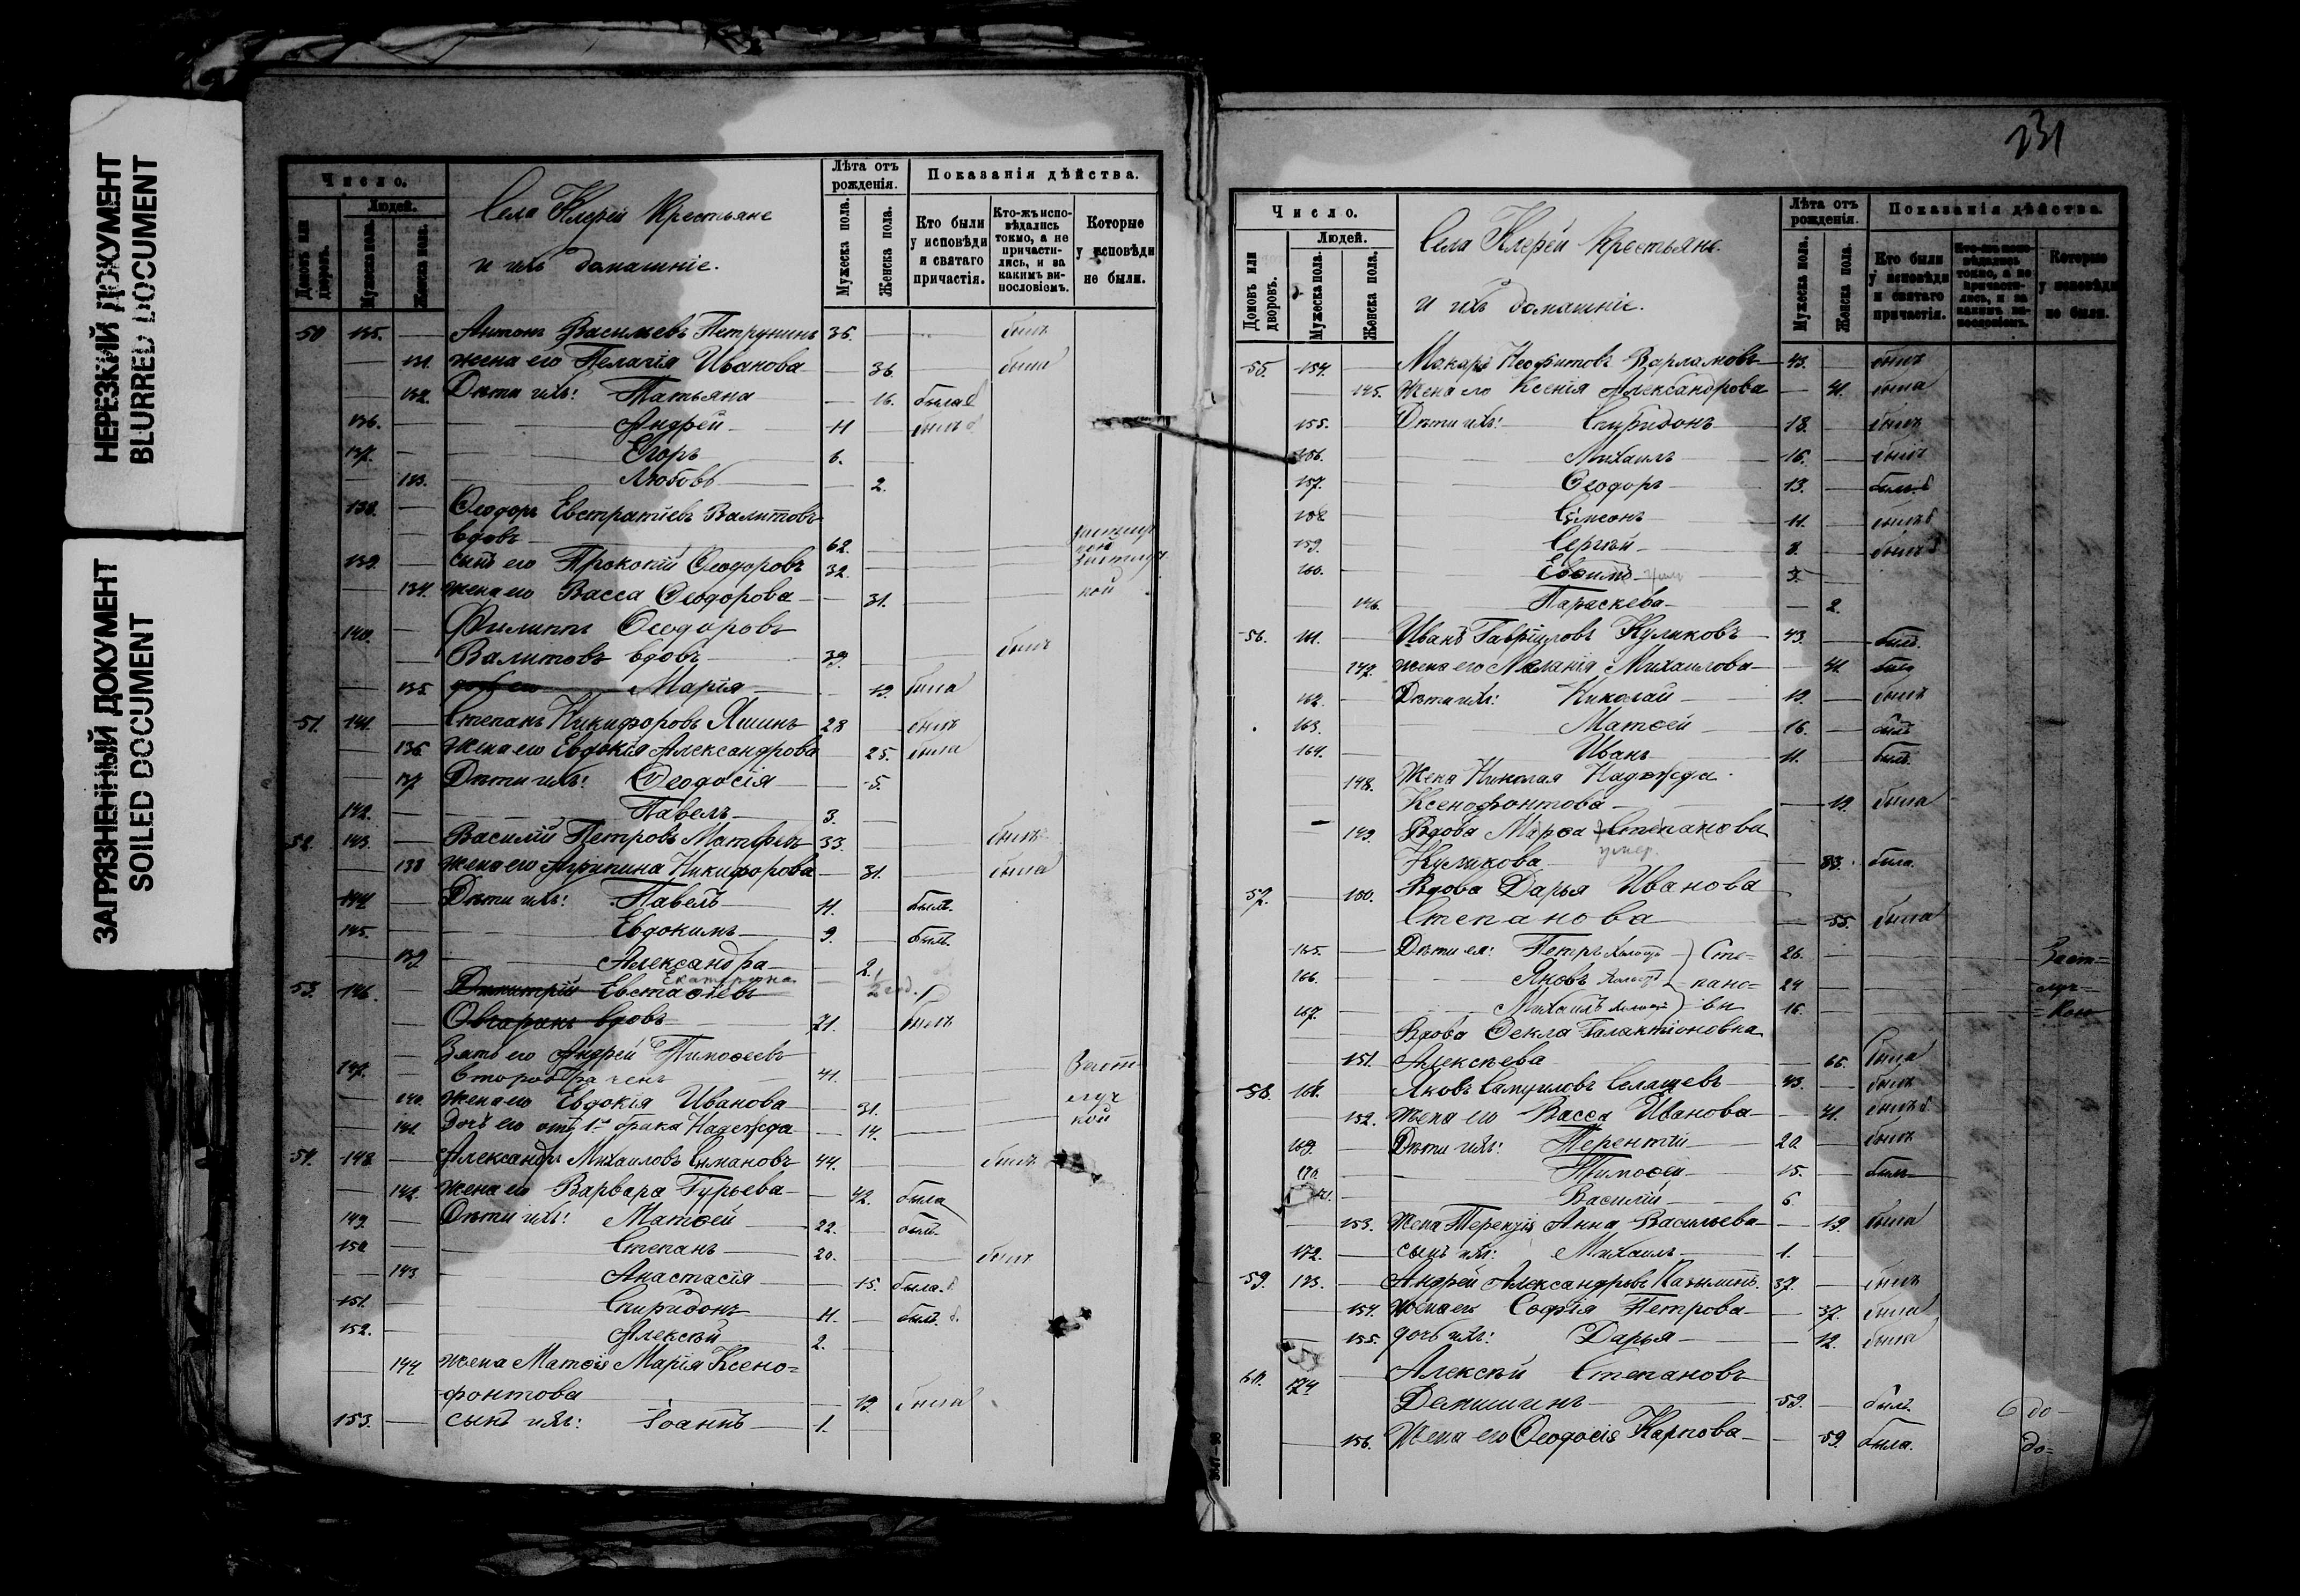 НЕРЕЗКИЙ ДОКУМЕНТ
BLURRED DOCUMENT
ЗАГРЯЗНЕННЫЙ ДОКУМЕНТ
SOILED DOCUMENT
Число.
Людей.
Домовъ или дворовъ.
Мужеска пола.
Женска пола.
Села Клерей крестьяне
и ихъ домашніе.
Лѣта отъ рожденія.
Мужеска пола.
Женска пола.
Показанія дѣйства.
Кто были у исповѣди и святаго причастія.
Кто-жъ исповѣдались токмо, а не причастились, и за какимъ винословіемъ.
Которые у исповѣди не были.
50 135. Антонъ Васильевъ Петрунинъ 36. былъ
131. жена его Пелагія Иванова 36. была
132. Дѣти ихъ: Татьяна 16. была
136. Андрей 11 былъ
137. Егоръ 6.
133. Любовь 2.
138. Ѳеодоръ Евстратіевъ Валитовъ
вдовъ 62.
139. сынъ его Прокопій Ѳеодоровъ 32.
134. жена его Васса Ѳеодорова 31.
140. Филиппъ Ѳеодоровъ
Валитовъ вдовъ 39. былъ
135. дочь его Марія 19 была
51. 141. Степанъ Никифоровъ Яшинъ 28 былъ
136 Жена его Евдокія Александрова 25. была
137 Дѣти ихъ: Ѳеодосія 5.
142. Павелъ 3.
52 143. Василій Петровъ 33. былъ
138 жена его Агрипина Никифорова 31. была
144 Дѣти ихъ: Павелъ 11. былъ
145. Евдокимъ 9. былъ
139 Александра 2.
Екатерина
53. 146. Димитрій Евстаѳіевъ
Овчаринъ вдовъ 71. былъ
Зять его Андрей Тимоѳеевъ
147. второбраченъ 41.
140. жена его Евдокія Иванова 31.
141. дочь его отъ 1го брака Надежда 14.
54. 148 Александръ Михаиловъ Симановъ 44. былъ
142. жена его Варвара Гурьева 42. была
149. Дѣти ихъ: Матѳей 22. былъ
150 Степанъ 20. былъ
143 Анастасія 15. была
151. Спиридонъ 11. былъ
152. Алексѣй 2.
144 жена Матѳія Марія Ксено=
фонтова 19. была
153. сынъ ихъ: Іоаннъ 1.
231
Число.
Людей.
Домовъ или дворовъ.
Мужеска пола.
Женска пола.
Села Клерей крестьяне
и ихъ домашніе.
Лѣта отъ рожденія.
Мужеска пола.
Женска пола.
Показанія дѣйства.
Кто были у исповѣди и святаго причастія.
Кто-жъ исповѣдались токмо, а не причастились, и за какимъ винословіемъ.
Которые у исповѣди не были.
55. 154. Макаръ Неофитовъ Варламовъ 43. былъ
145. Жена его Ксенія Александрова 41. была
155. Дѣти ихъ: Спиридонъ 18. былъ
156. Михаилъ 16. былъ
157. Ѳеодоръ 13. былъ
158 Сѵмеонъ 11. былъ
159. Сергѣй 8. былъ
160. Евѳимъ 3.
146. Параскева 2.
56. Иванъ Гавриловъ Куликовъ 43. былъ
147. жена его Меланія Михаилова 41. была
162. Дѣти ихъ: Николай 19. былъ
163. Матѳей 16. былъ
164. Иванъ 11. былъ
148. Жена Николая Надежда
Ксенофонтова 19. была
149 Вдова Марѳа Степанова
умер.
Куликова 83. была.
57. 150. Вдова Дарья Иванова
Степанова 55. была
165. Дѣти ея: Петръ холостъ Сте= 26.
166. Яковъ холостъ пано= 24
167. Михаилъ холостъ вы 16.
Вдова Ѳекла Галактіоновна
151. Алексѣева 66. была
58. 168. Яковъ Самуиловъ 43. былъ
152. жена его Васса Иванова 41.
169. Дѣти ихъ: Терентій 20. былъ
170. Тимоѳей 15. былъ
171. Василій 6.
153. жена Терентія Анна Васильева 19. была
172. сынъ ихъ: Михаилъ 1.
59. 173. Андрей Александровъ 37. былъ
154. жена его Софія Петрова 37. была
155. дочь ихъ: Дарья 12. была
60. 174 Алексѣй Степановъ
Демишинъ 59. былъ
156. Жена его Ѳеодосія Карпова 59. была.